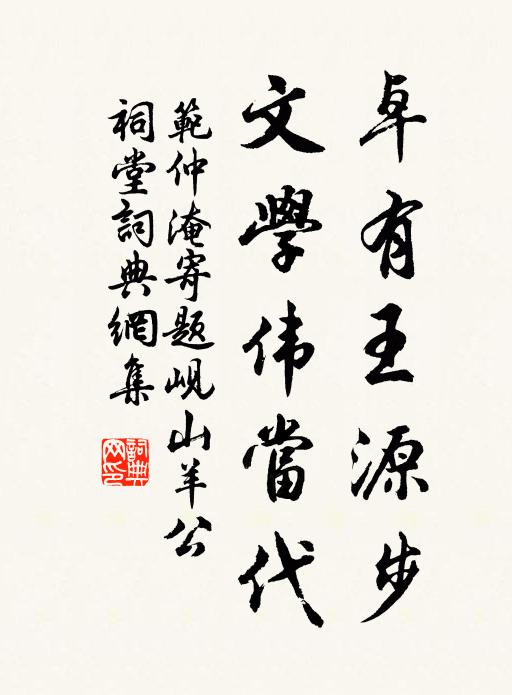 卓有王源步
文學伟當代
範仲淹寄题岘山羊公
祠堂詞典網集
詞典網印